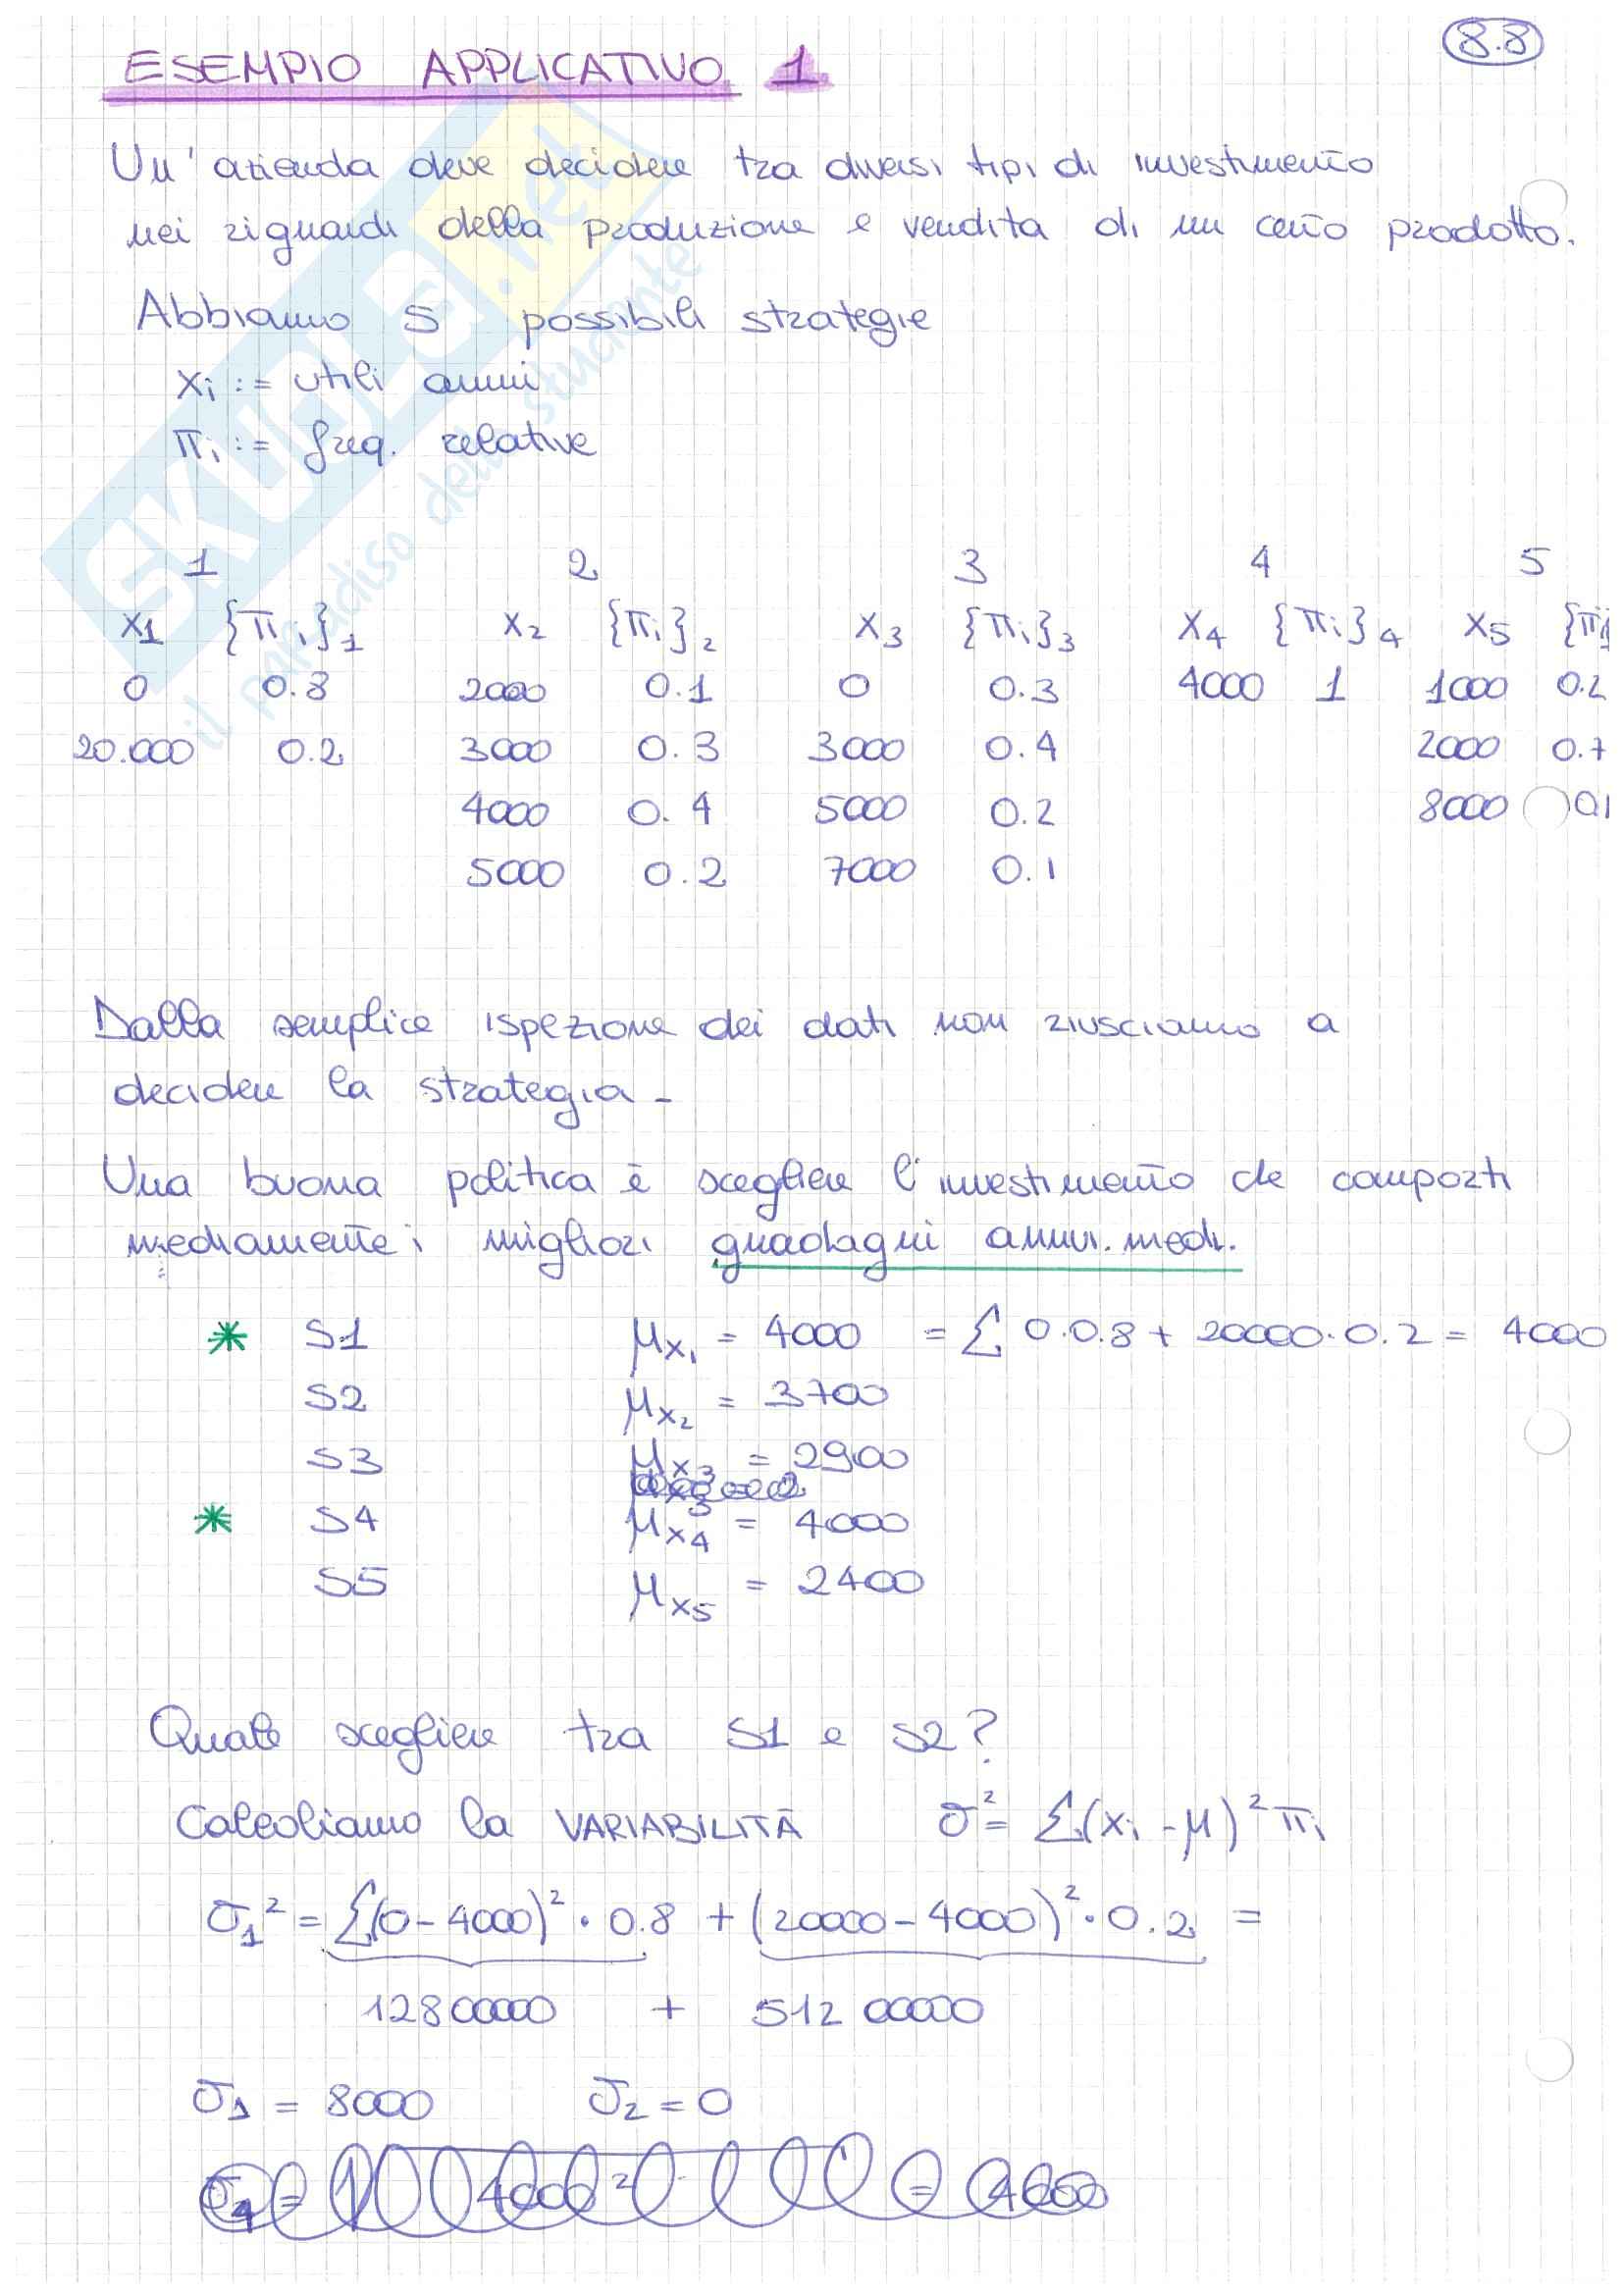 8.8
ESEMPIO APPLICATIVO 1
Un' azienda deve decidere tra diversi tipi di investimento
nei riguardi della produzione e vendita di un certo prodotto.
Abbiamo 5 possibili strategie
xi := utili annui
πi := freq. relative
1 2 3 4 5
x1 {πi}1 x2 {πi}2 x3 {πi}3 x4 {πi}4 x5 {πi
0 0.8 2000 0.1 0 0.3 4000 1 1000 0.2
20.000 0.2 3000 0.3 3000 0.4 2000 0.7
4000 0.4 5000 0.2 8000 0.1
5000 0.2 7000 0.1
Dalla semplice ispezione dei dati non riusciamo a
decidere la strategia -
Una buona politica è scegliere l'investimento che comporti
mediamente i migliori guadagni annui medi.
* S1 μx1 = 4000 = Σ 0·0.8 + 20000·0.2 = 4000
S2 μx2 = 3700
S3 μx3 = 2900
* S4 μx4 = 4000
S5 μx5 = 2400
Quale scegliere tra S1 e S2?
Calcoliamo la VARIABILITÀ σ² = Σ(xi - μ)² πi
σ1² = Σ(0 - 4000)² · 0.8 + (20000 - 4000)² · 0.2 =
12800000 + 51200000
σ1 = 8000 σ2 = 0
SKUOLA.net
il paradiso dello studente